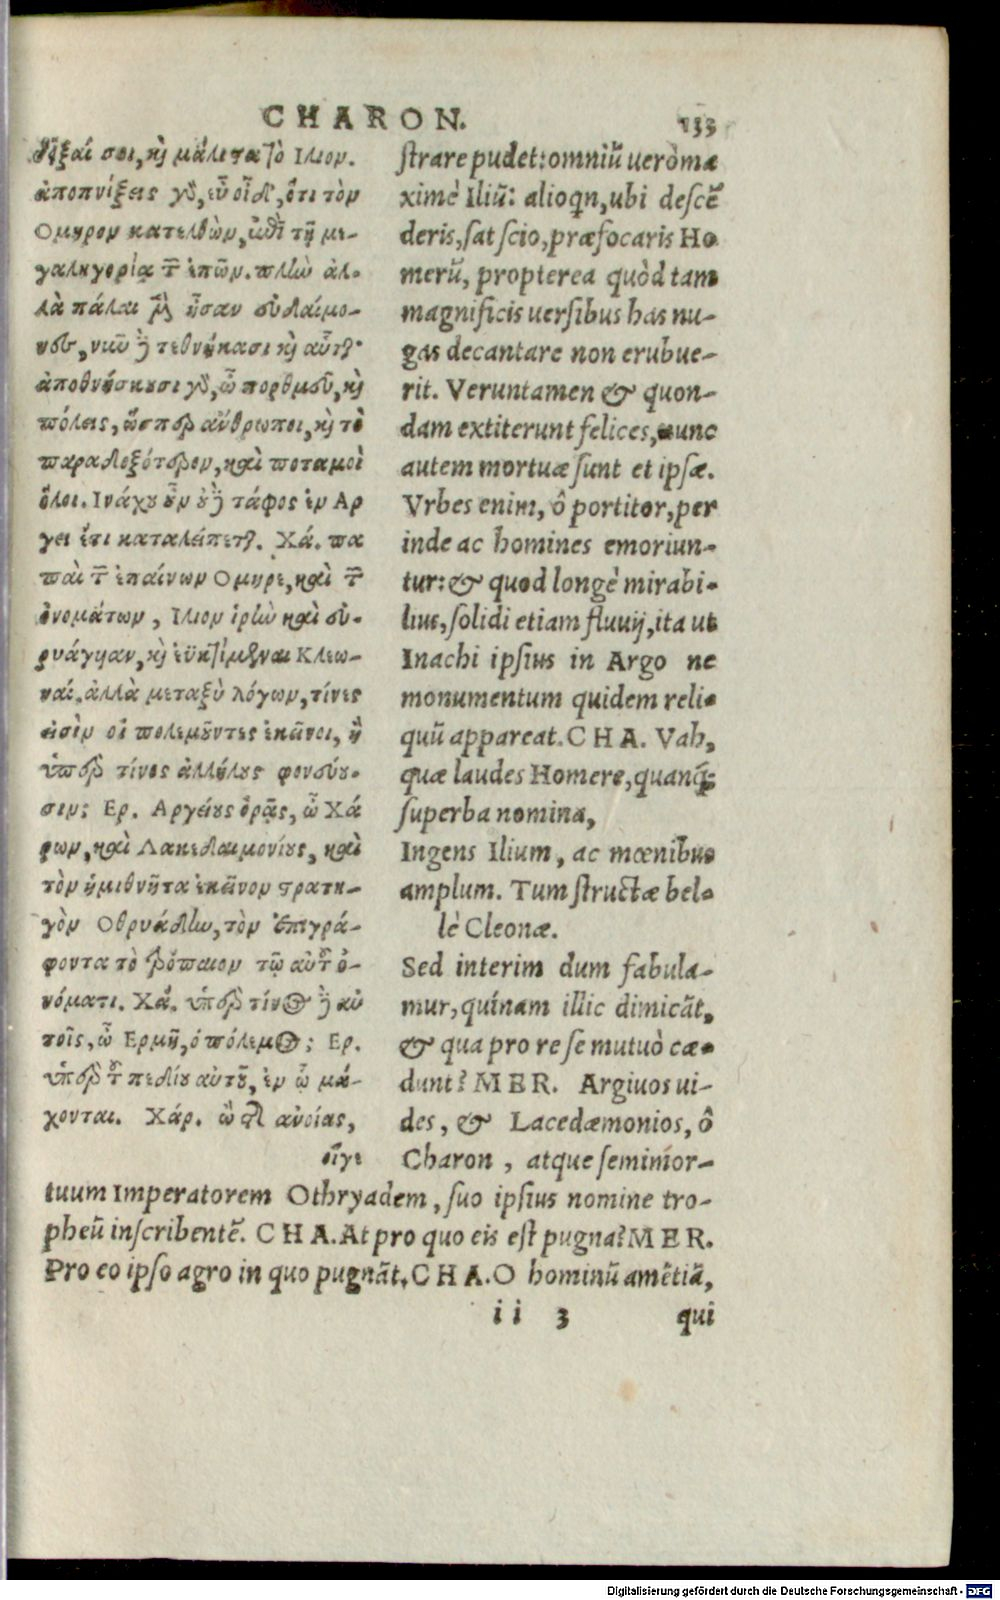 CHARON. 133
δεῖξαί σοι, κỳ μάλιστα τὸ Ἴλιον.
ἀποπνίξεις γδ, εὖ οἶδ', ὅτι τὸν
Ομηρον κατελθὼν, ἐπὶ τῇ με-
γαληγορίᾳ τῶν ἐπῶν. πλὴν ἀλ-
λὰ πάλαι μὲν ἦσαν εὐδαίμο-
νες, νῦν δὲ τεθνήκασι κỳ αὗται·
ἀποθνήσκουσι γδ, ὦ πορθμεῦ, κỳ
πόλεις, ὥσπερ ἄνθρωποι, κỳ τὸ
παραδοξότερον, καὶ ποταμοὶ
ὅλοι. Ινάχου οὖν οὐδὲ τάφος ἐν Αρ
γει ἔτι καταλείπεται. Χά. πα
παὶ τῶν ἐπαίνων Ομηρε, καὶ τῶν
ὀνομάτων, Ιλιον ἱρὴν καὶ εὐ-
ρυάγυιαν, κỳ ἐϋκτίμεναι Κλεω-
ναί. ἀλλὰ μεταξὺ λόγων, τίνες
εἰσὶν οἱ πολεμοῦντες ἐκεῖνοι, ἢ
ὑπὲρ τίνος ἀλλήλους φονεύου-
σιν; Ερ. Αργείους ὁρᾷς, ὦ Χά
ρων, καὶ Λακεδαιμονίους, καὶ
τὸν ἡμιθνῆτα ἐκεῖνον στρατη-
γὸν Οθρυάδην, τὸν ἐπιγρά-
φοντα τὸ τρόπαιον τῷ αὑτοῦ ὀ-
νόματι. Χά. ὑπὲρ τίνος δὲ αὐ
τοῖς, ὦ Ερμῆ, ὁ πόλεμος; Ερ.
ὑπὲρ τοῦ πεδίου αὐτοῦ, ἐν ᾧ μά-
χονται. Χάρ. ὢ τῆς ἀνοίας,
οἵγε
strare pudet: omniũ uerò ma
ximè Iliũ: alioqn, ubi descẽ
deris, sat scio, præfocaris Ho
merũ, propterea quòd tam
magnificis uersibus has nu-
gas decantare non erubue-
rit. Veruntamen & quon-
dam extiterunt felices, nunc
autem mortuæ sunt et ipsæ.
Vrbes enim, ô portitor, per
inde ac homines emoriun-
tur: & quod longè mirabi-
lius, solidi etiam fluuij, ita ut
Inachi ipsius in Argo ne
monumentum quidem reli-
quũ appareat. CHA. Vah,
quæ laudes Homere, quanq́;
superba nomina,
Ingens Ilium, ac mœnibus
amplum. Tum structæ bel-
lè Cleonæ.
Sed interim dum fabula-
mur, quínam illic dimicãt,
& qua pro re se mutuò cæ-
dunt? MER. Argiuos ui-
des, & Lacedæmonios, ô
Charon, atque seminior-
tuum Imperatorem Othryadem, suo ipsius nomine tro-
pheũ inscribentẽ. CHA. At pro quo eis est pugna? MER.
Pro eo ipso agro in quo pugnãt. CHA. O hominũ amẽtiã,
ii 3 qui
Digitalisierung gefördert durch die Deutsche Forschungsgemeinschaft - DFG